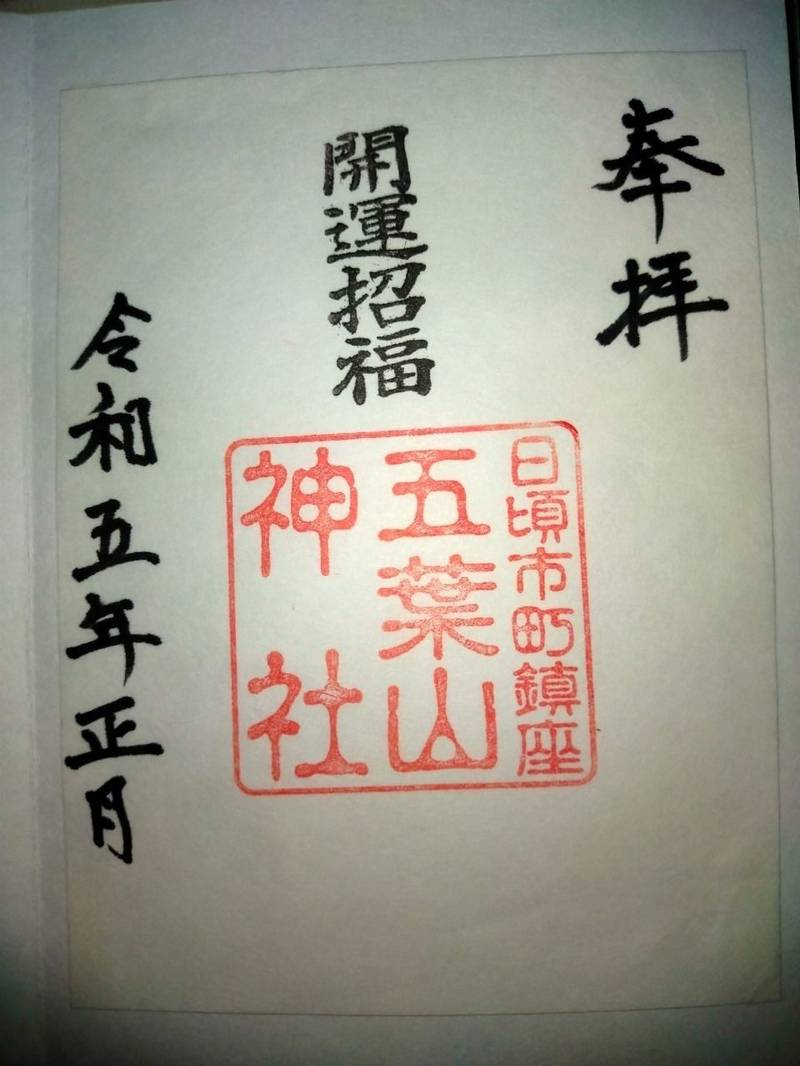 奉拝
開運招福
日頃市町鎮座
五葉山
神社
令和五年正月